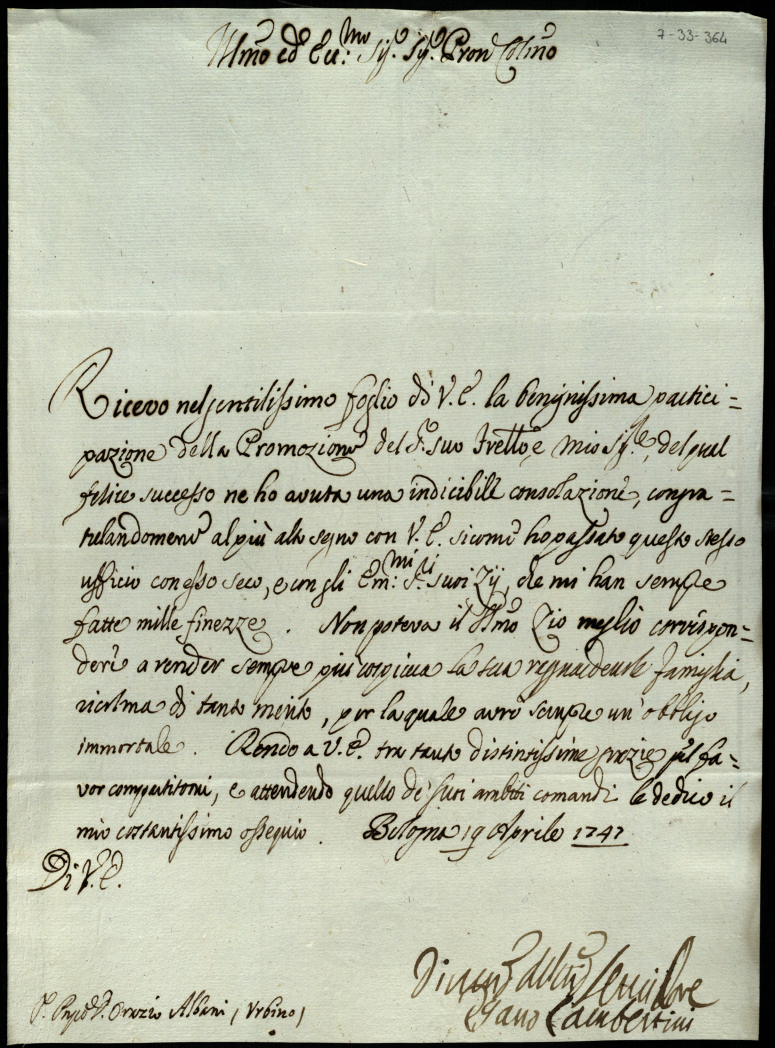 7-33-364
Illmo ed Ecc:mo Sig. Sig. Pron Colmo
Ricevo nel gentilissimo foglio di V. E. la benignissima parteci=
pazione della Promozione del Sr. suo Fretto, e mio Sigre, del qual
felice successo ne ho avuta una indicibile consolazione, congra=
tulandomene al più alto segno con V. E. sicome ho passato questo stesso
ufficio con esso seco, e con gli Emi: Sri. suoi Zij, che mi han sempre
fatte mille finezze. Non poteva il Zio meglio corrispon=
dere a render sempre più cospicua la sua famiglia,
ricolma di tanto merito, per la quale avrò sempre un' obbligo
immortale. Rendo a V. E. tra tanto distintissime grazie pel fa=
vor compartitomi, e attendendo quello de' suoi ambiti comandi le dedico il
mio costantissimo ossequio. Bologna 19 Aprile 1747
Di V. E.
Servidore
Lambertini
Orazio Albani (Urbino)